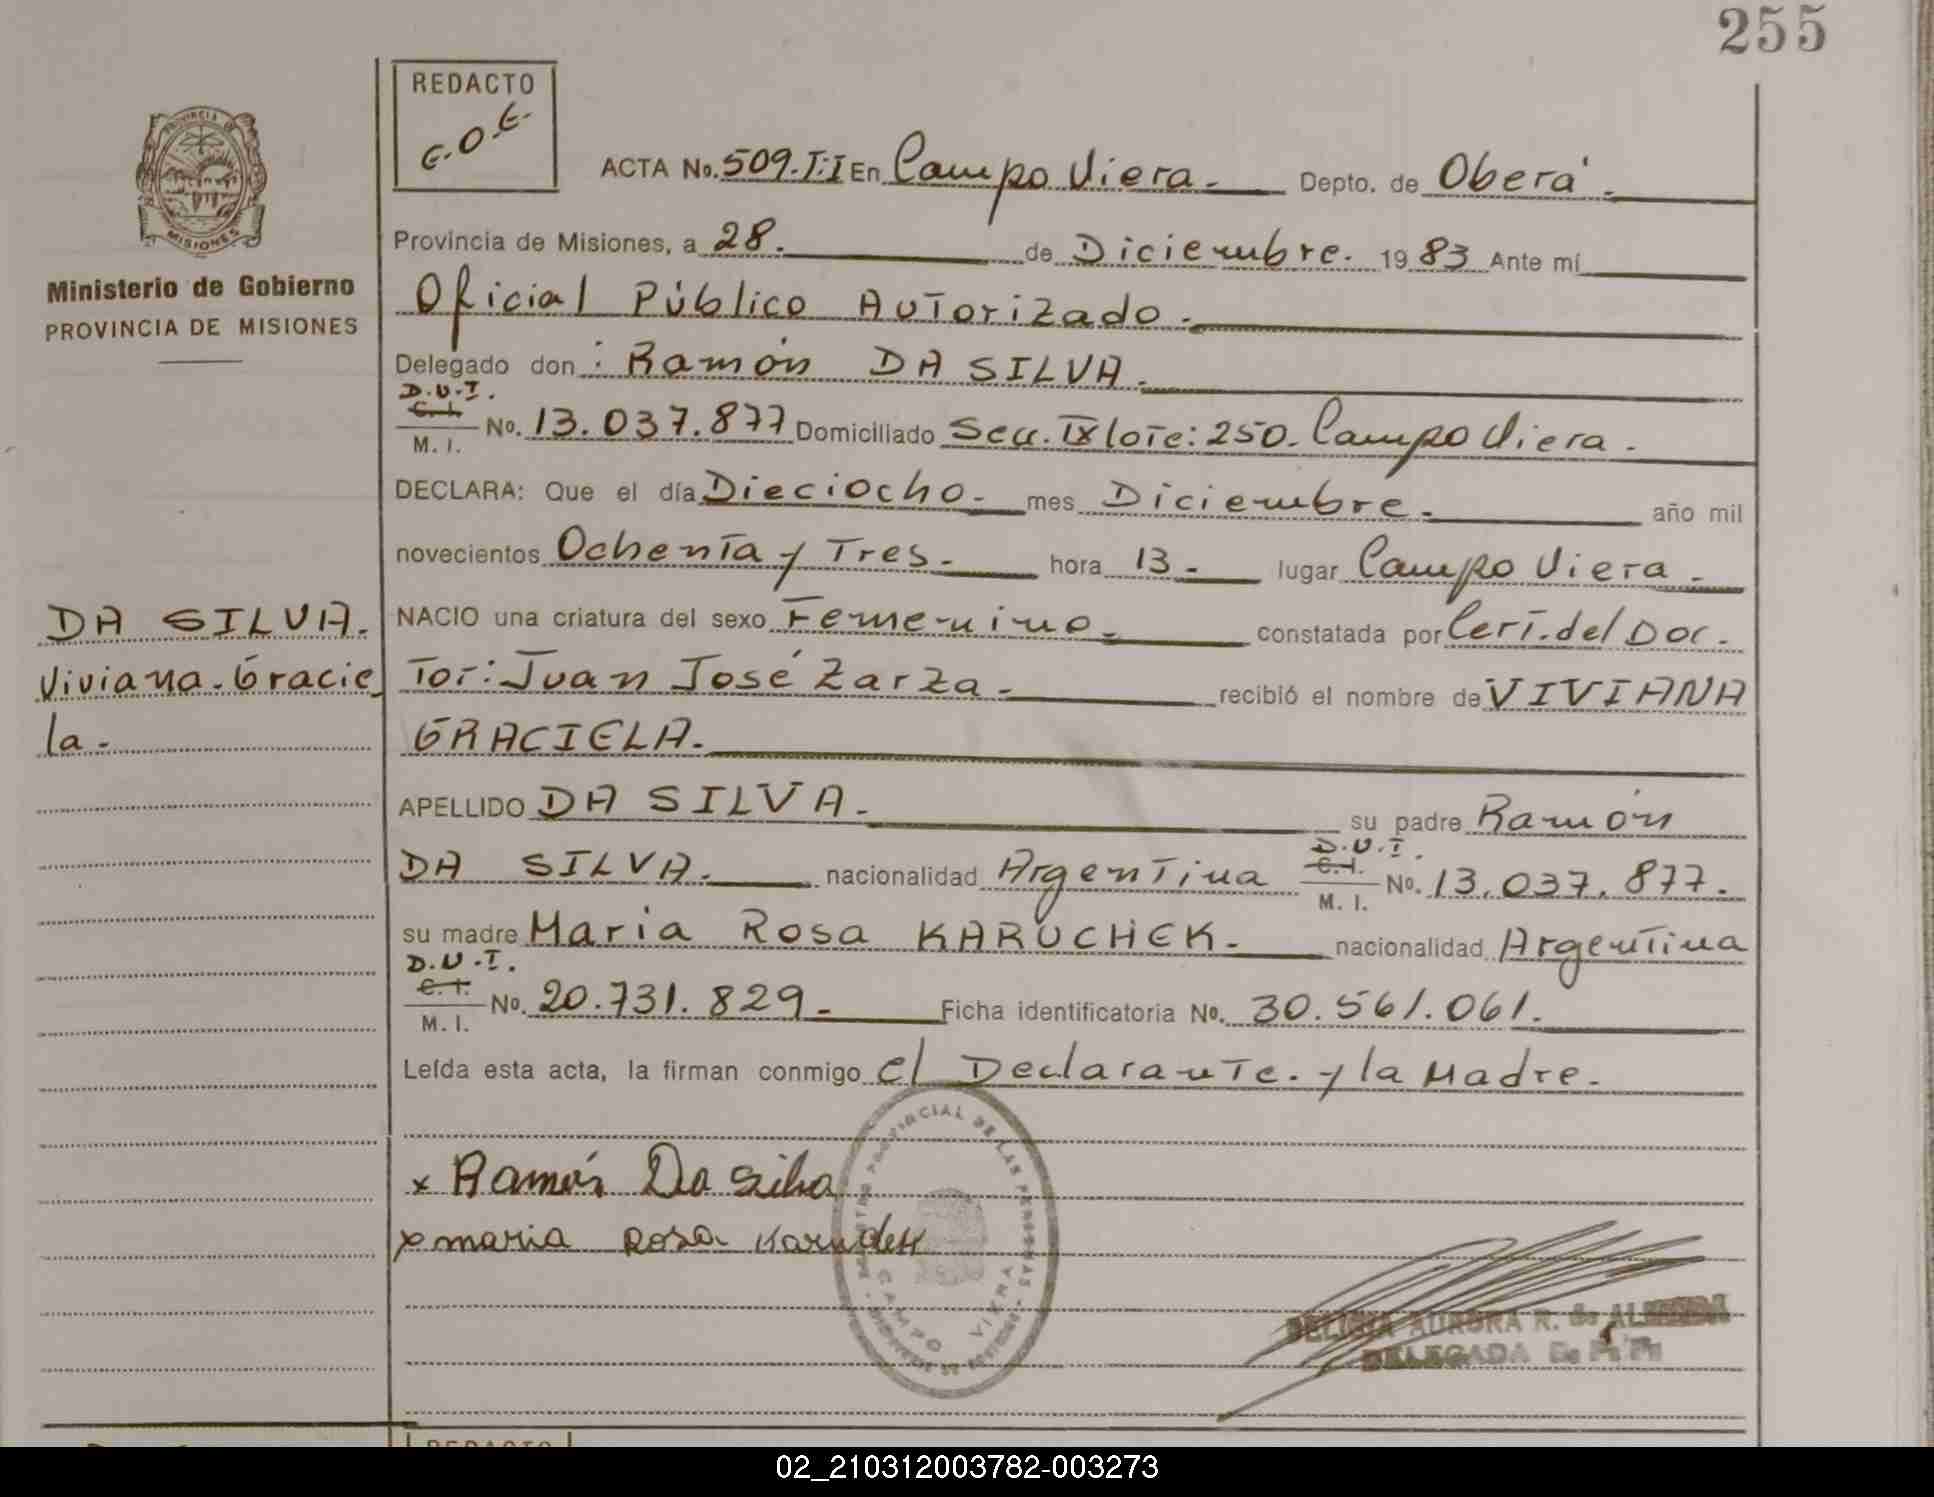 255
REDACTO
ACTA No. 509.I:I En Campo Viera.- Depto. de Oberá.-
Provincia de Misiones, a 28. de Diciembre. 1983 Ante mí
Oficial Público Autorizado.-
Delegado don: Ramón DA SILVA.
D.U.I.
C.I.
M. I. No. 13.037.877 Domiciliado Secc. IX lote: 250. Campo Viera.
DECLARA: Que el día Dieciocho.- mes Diciembre.- año mil
novecientos Ochenta y Tres.- hora 13.- lugar Campo Viera.-
NACIO una criatura del sexo Femenino.- constatada por Cert. del Doc.
Tor: Juan José Zarza.- recibió el nombre de VIVIANA
GRACIELA.-
APELLIDO DA SILVA.- su padre Ramón
DA SILVA.- nacionalidad Argentina D.U.I. C.I. M. I. No. 13.037.877.
su madre Maria Rosa KARUCHEK.- nacionalidad Argentina
D.U.I.
C.I.
M. I. No. 20.731.829.- Ficha identificatoria No. 30.561.061.
Leída esta acta, la firman conmigo el Declarante. y la Madre.
x Ramón Da Silva
x maria Rosa
REGISTRO PROVINCIAL DE LAS PERSONAS
CAMPO VIERA
AURORA R. de
DELEGADA
PROVINCIA DE
MISIONES
Ministerio de Gobierno
PROVINCIA DE MISIONES
DA SILVA.
Viviana. Gracie
la.-
REDACTO
02_210312003782-003273